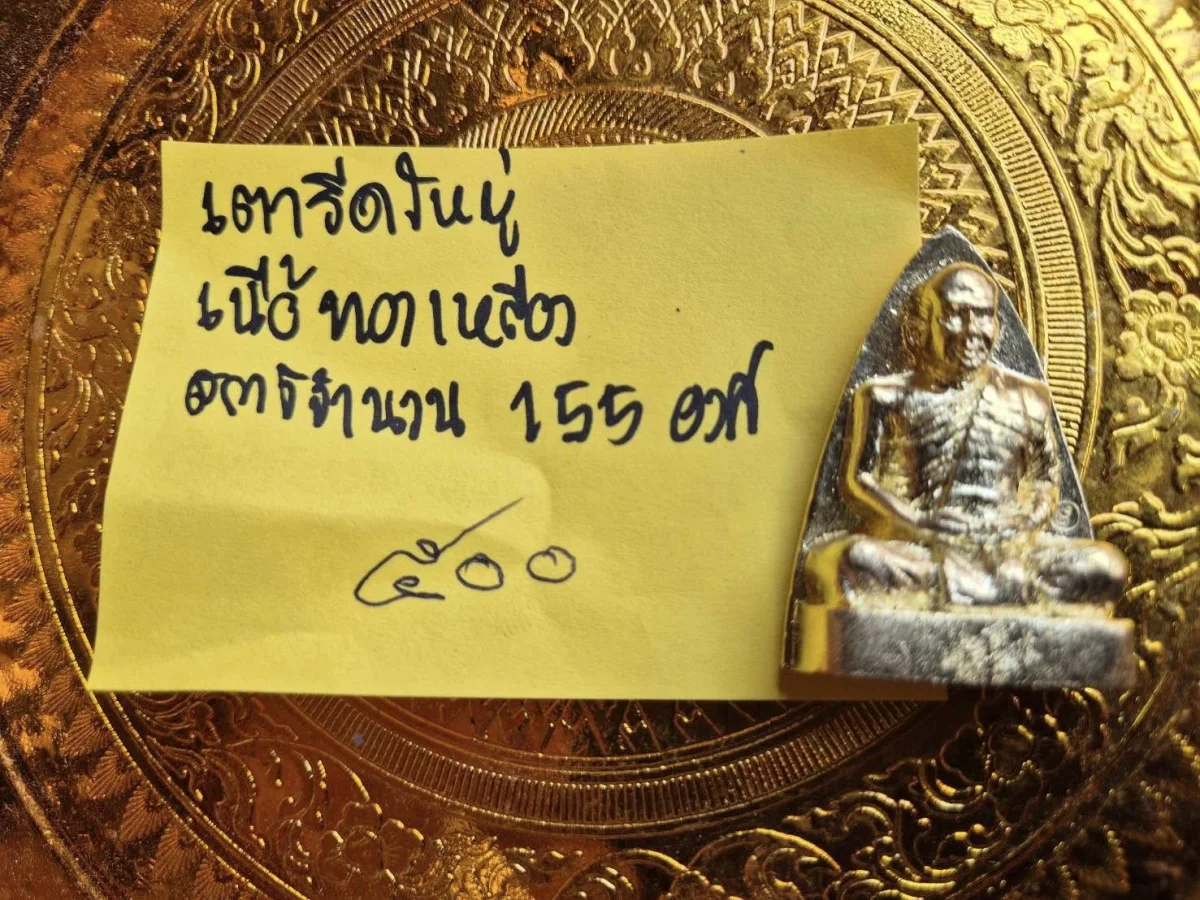 เตารีดใหญ่
เนื้อทองเหลือง
จำนวน 155 องค์
๕๐๐